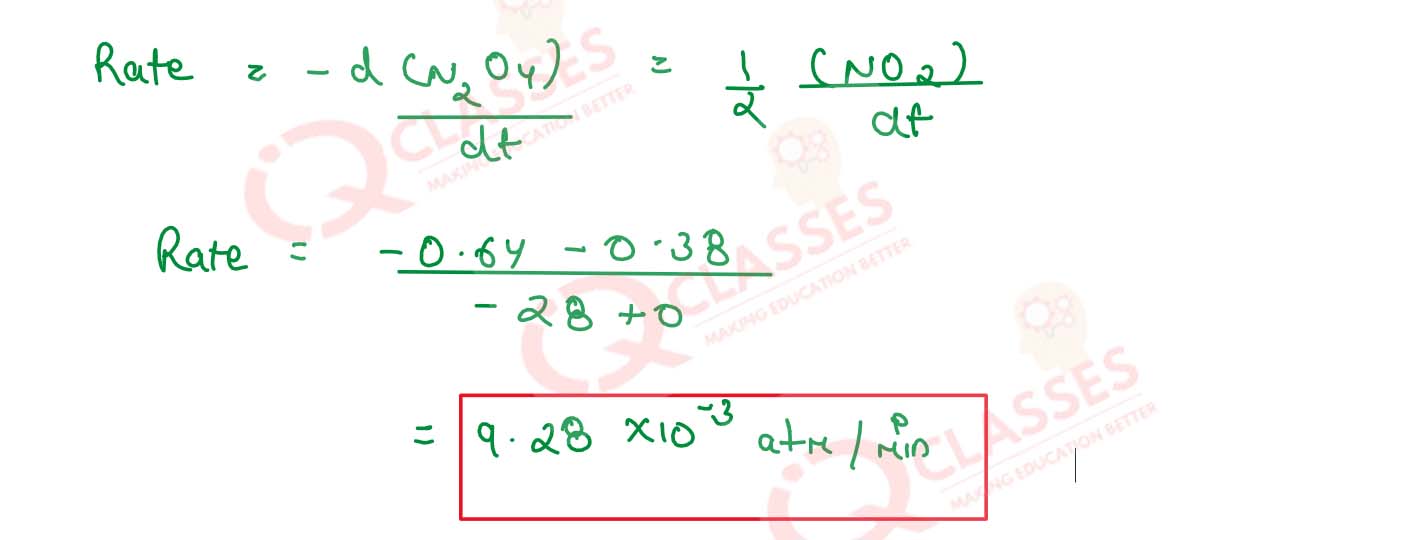 Rate = - d (N2O4) / dt = 1/2 (NO2) / dt
Rate = - 0.64 - 0.38 / - 28 + 0
= 9.28 × 10^-3 atm / min
IQ CLASSES
MAKING EDUCATION BETTER
IQ CLASSES
MAKING EDUCATION BETTER
IQ CLASSES
MAKING EDUCATION BETTER